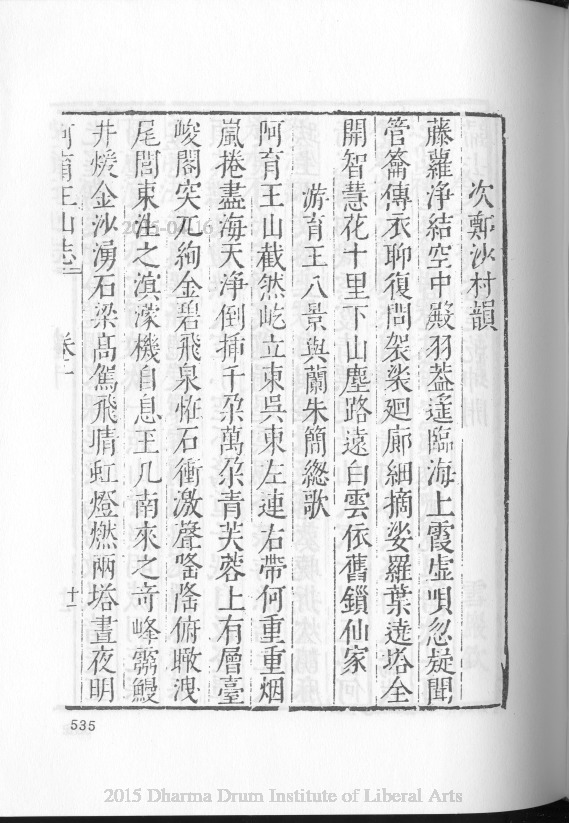 次鄭沙村韻
藤蘿淨結空中殿羽葢遙臨海上霞虛唄忽疑聞
管籥傳衣聊復問袈裟廻廊細摘娑羅葉遶塔全
開智慧花十里下山塵路遠白雲依舊鎖仙家
游育王八景與蘭朱簡緫歌
阿育王山截然屹立東吳東左連右帶何重重烟
嵐捲盡海天淨倒揷千朶萬朶青芙蓉上有層臺
峻閣突兀絢金碧飛泉恠石衝激聲嘧隆俯瞰洩
尾閭東注之溟濛機自息王几南來之奇峰霱鰻
井煖金沙湧石梁髙駕飛晴虹燈燃兩塔晝夜明
阿育王山志 卷十 十一
535
2015 Dharma Drum Institute of Liberal Arts